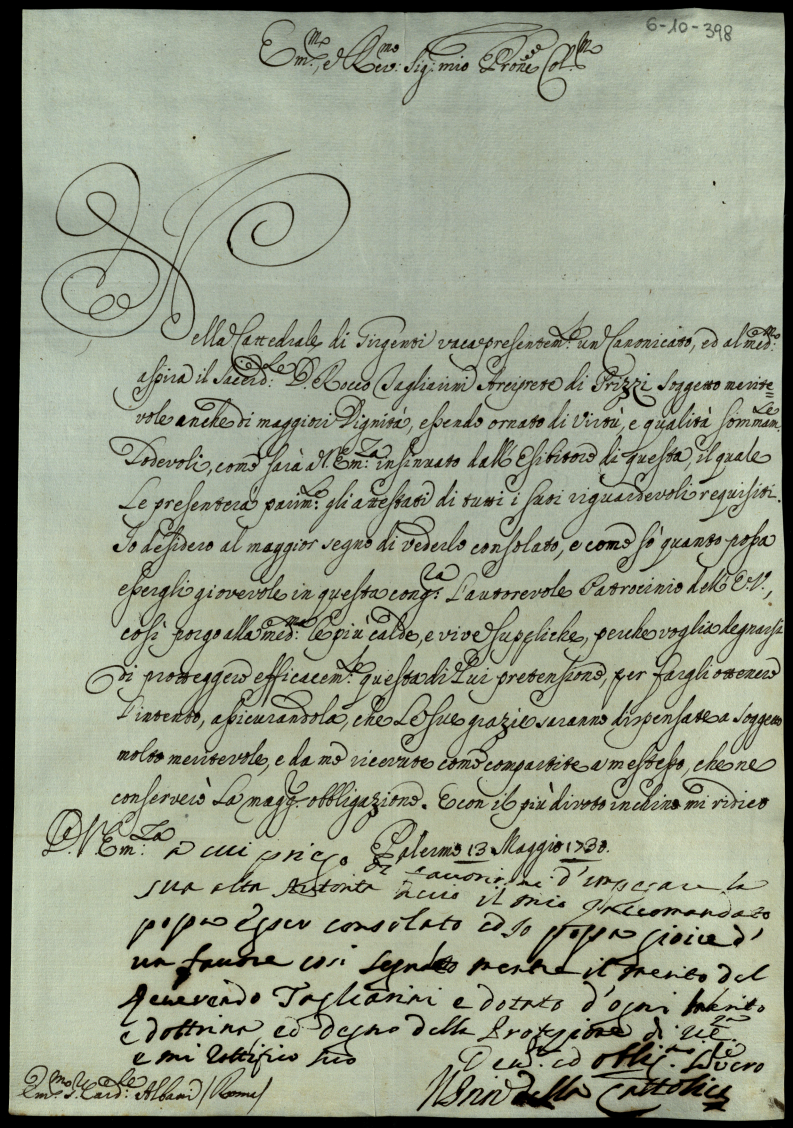 6-10-398
Em.mo, e Rev.mo Sig.r mio P.rone Col.mo
Nella Cattedrale di Girgenti vaca presentem.te un Canonicato, ed al med.mo
aspira il Sacerd.le D. Rocco Tagliarini Arciprete di Prizzi soggetto merite=
vole anche di maggiori Dignità, essendo ornato di Virtù, e qualità sommam.te
Lodevoli, come sarà a V. Em.za insinuato dall'Esibitore di questa, il quale
Le presenterà parim.te gli attestati di tutti i suoi riguardevoli requisiti.
Io desidero al maggior segno di vederlo consolato, e come sò quanto possa
essergli giovevole in questa cong.ra l'autorevole Patrocinio dell'E.V.,
così porgo alla med.ma le più calde, e vive suppliche, perche voglia degnarsi
di proteggere efficacem.te questa di Lui pretensione, per fargli ottenere
l'intento, assicurandola, che Le sue grazie saranno dispensate a soggetto
molto meritevole, e da me ricevute come compartite a me stesso, che ne
conserverò la magg.r obbligazione. E con il più divoto inchino mi ridico
Di V. Em.za Palermo 13 Maggio 1730.
a cui priego di favorirmi d'impegnare la
sua alta Autorità il mio raccomandato
possa esser consolato ed Io possa gioire d'
un favore così segnalato mentre il merito del
Reverendo Tagliarini e dotato d'ogni merito
e dottrina ed degno della Protezione di V.E.
e mi ratifico suo
Dev.mo ed obblig.mo Servo vero
Il Prin. della Cattolica
Em.mo S. Card.le Albani (Roma)